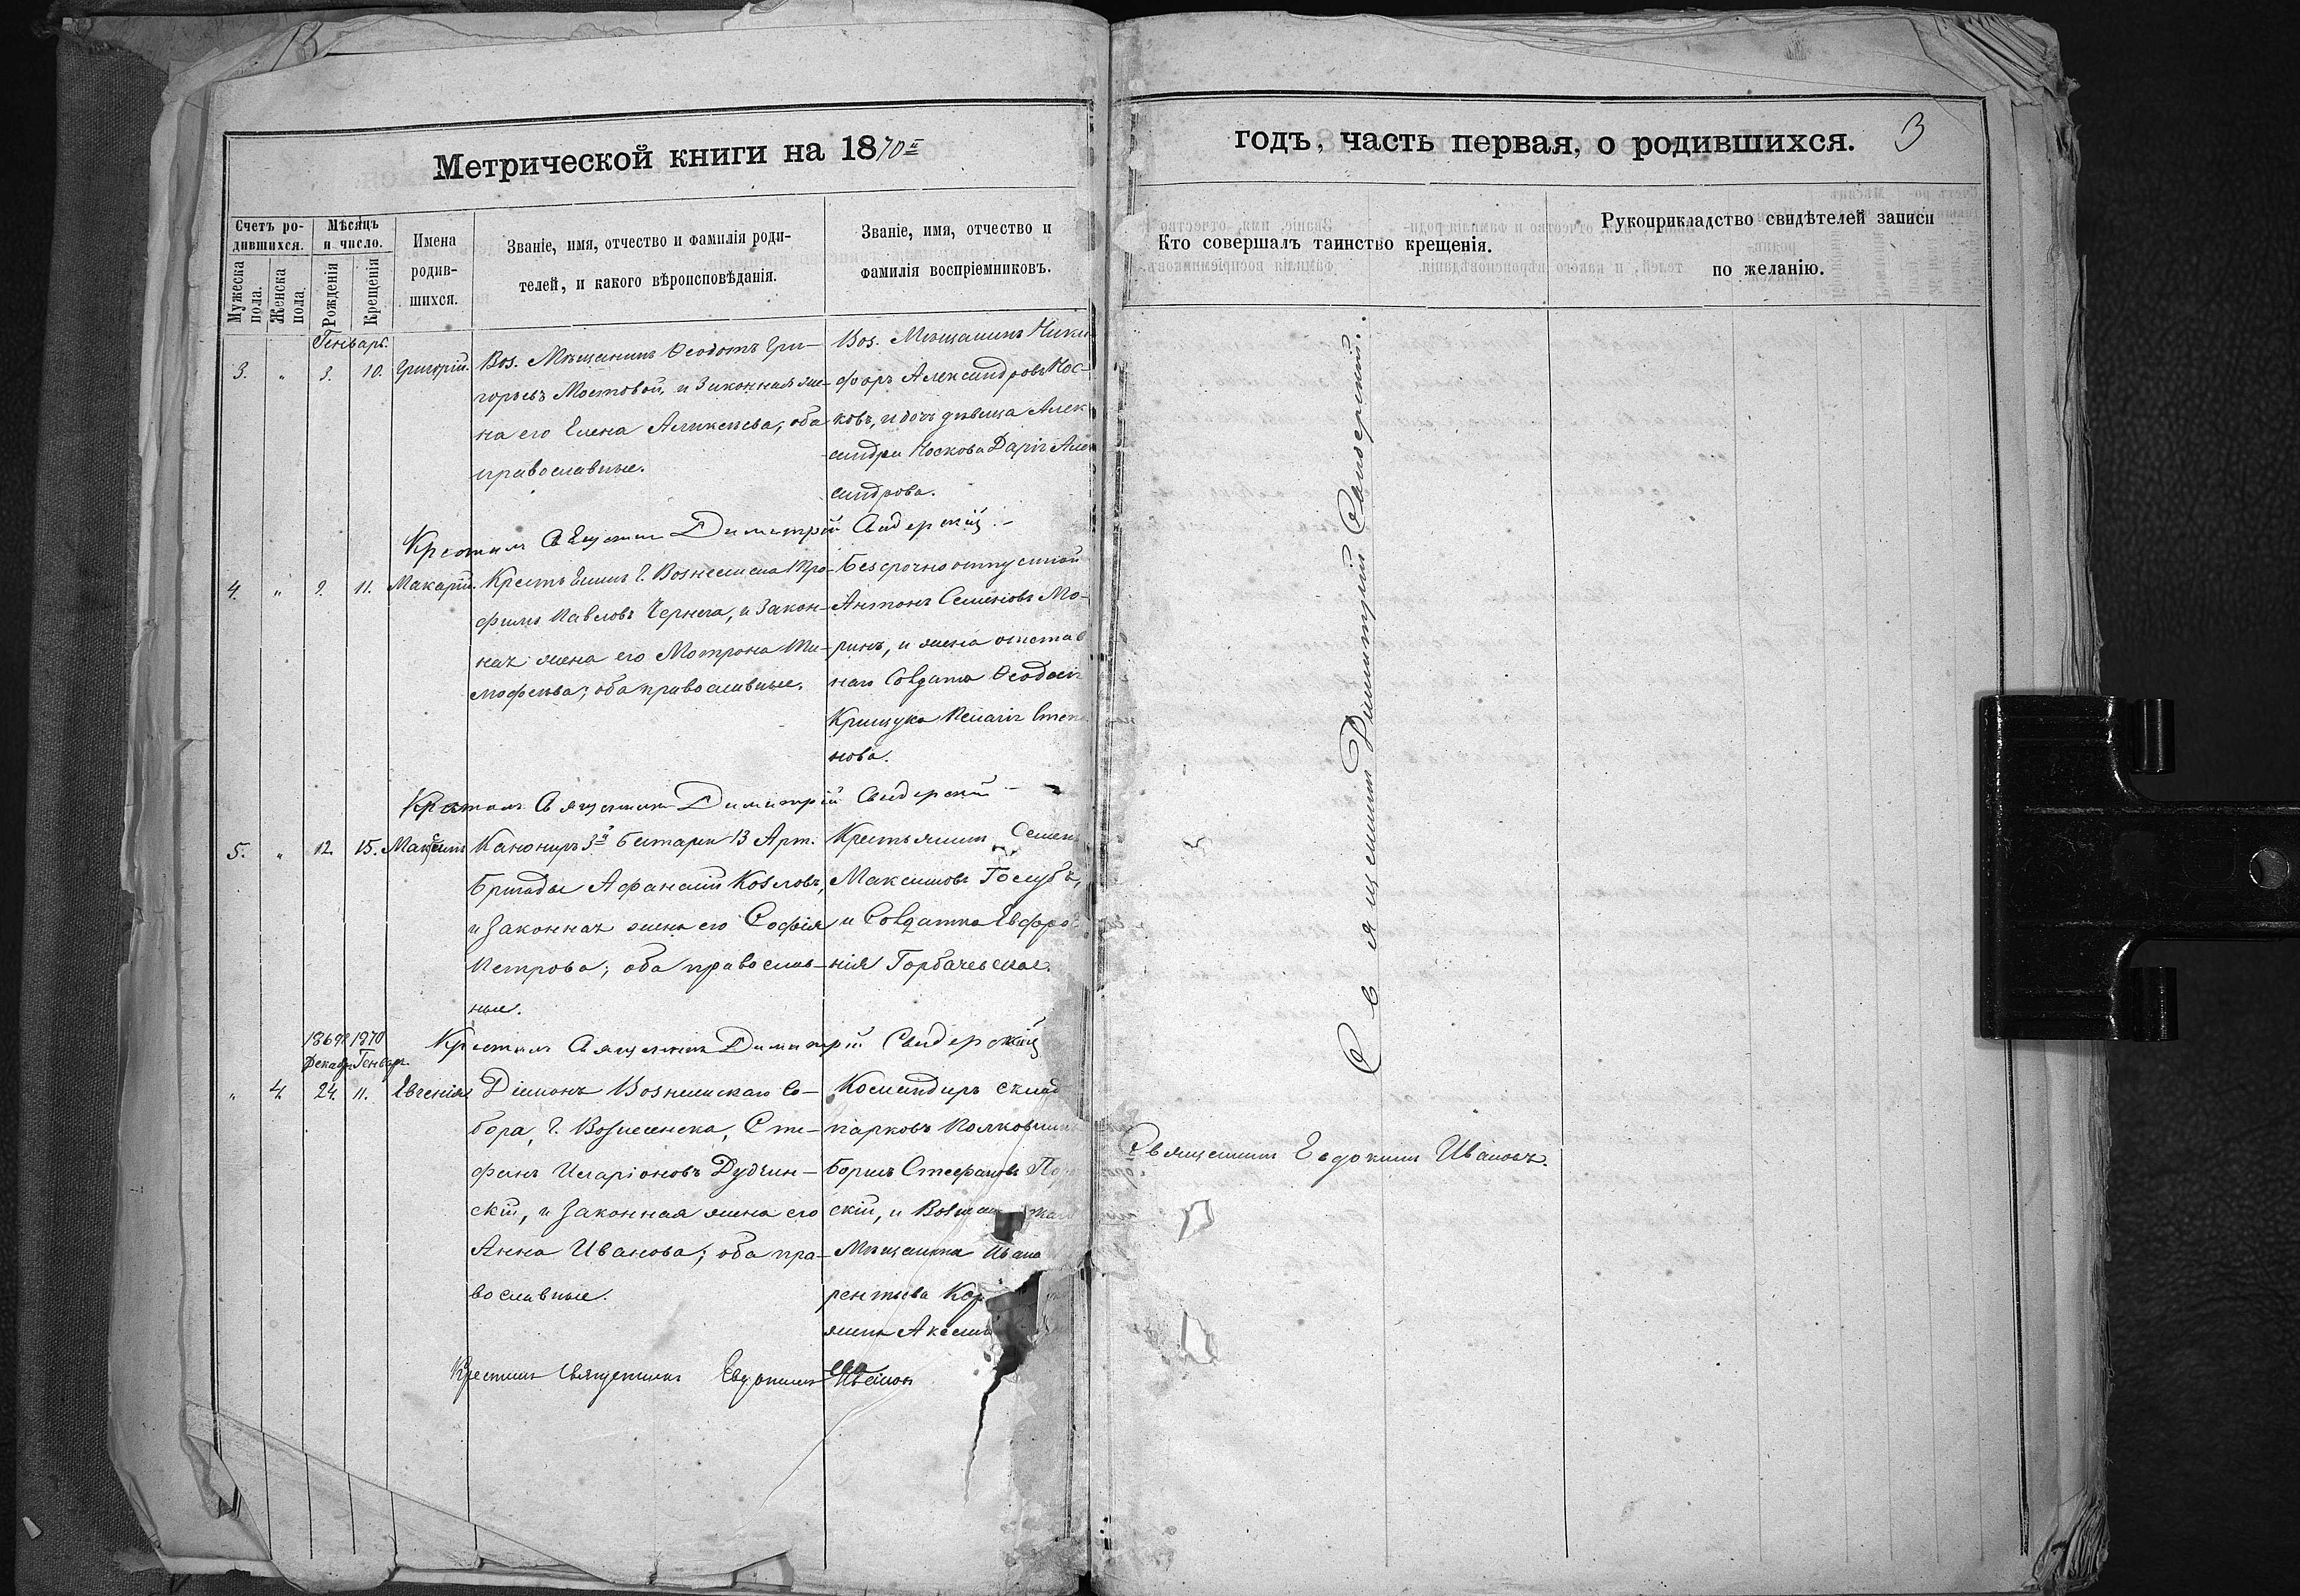 Метрической книги на 1870й
годъ, часть первая, о родившихся.
3
Счетъ ро-
дившихся.
Мѣсяцъ
и число.
Мужеска
пола.
Женска
пола.
Рожденія
Крещенія
Имена
родив-
шихся.
Званіе, имя, отчество и фамилія роди-
телей, и какого вѣроисповѣданія.
Званіе, имя, отчество и
фамилія воспріемниковъ.
Кто совершалъ таинство крещенія.
Рукоприкладство свидѣтелей записи
по желанію.
Генварь.
3. " 3. 10. Григорій.
Воз. Мѣщанинъ Ѳеодотъ Гри-
горьевъ Мостовой, и законная же-
на его Елена Алексѣева; оба
православные.
Воз. Мѣщанинъ Ники-
форъ Александровъ Нос-
ковъ, и дочь дѣвица Алек
сандра Носкова Дарія Алек
сандрова.
Крестилъ Священникъ Димитрій Свидерскій
4. " 9. 11. Макарій.
Крестьянинъ г. Вознесенска Тро-
фимъ Павловъ Чернега, и закон-
ная жена его Мотрона Ти-
мофеева; оба православные.
Безсрочноотпускной
Антонъ Семеновъ Мо-
ринъ, и жена отстав
наго Солдата Ѳеодосія
Крищука Пелагія Степа
нова.
Крестилъ Священникъ Димитрій Свидерскій
5. " 12. 15. Максимъ
Канониръ 3й батареи 13 Арт.
бригады Афанасій Козловъ,
и законная жена его Софія
Петрова; оба православ-
ные.
Крестьянинъ Семенъ
Максимовъ Голубъ,
и Солдатка Евфро
нія Горбачевская.
Крестилъ Священникъ Димитрій Свидерскій
1869 1870
Декабр. Генварь
" 4. 24. 11. Евгенія
Діаконъ Вознесенскаго Со-
бора, г. Вознесенска, Сте-
фанъ Иларіоновъ Дудчин-
скій, и законная жена его
Анна Иванова; оба пра-
вославные.
Командиръ склад
парковъ Полковникъ
Борисъ Стефановъ
скій, и
Мѣщанина Ивана
рентьева
жена
Крестилъ Священникъ Евдокимъ Ивановъ
Священникъ Димитрій Свидерскій.
Священникъ Евдокимъ Ивановъ.